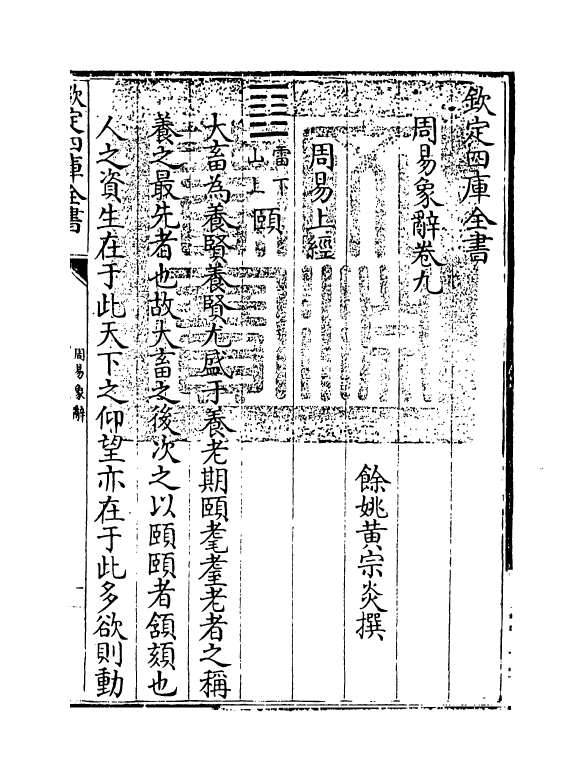 欽定四庫全書
周易象辭卷九
餘姚黃宗炎撰
周易上經
䷚
雷下
山上
頤
大畜為養賢養賢尤盛于養老期頤耄耋老者之稱
養之最先者也故大畜之後次之以頤頤者頷頦也
人之資生在于此天下之仰望亦在于此多欲則動
欽定四庫全書
周易象辭
一